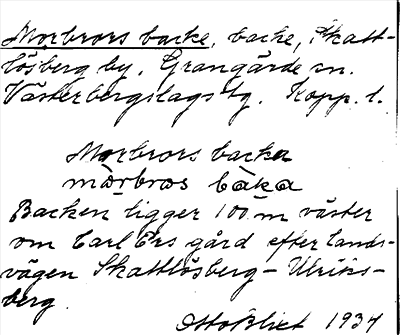 Morbrors backe, backe, Skatt-
lösberg by, Grangärde sn.
Västerbergslags tg. Kopp. l.
Morbrors backa
mòrbros bàka
Backen ligger 100 m väster
om Carl Ers gård efter lands-
vägen Skattlösberg - Ulriks-
berg
Otto Blixt 1934